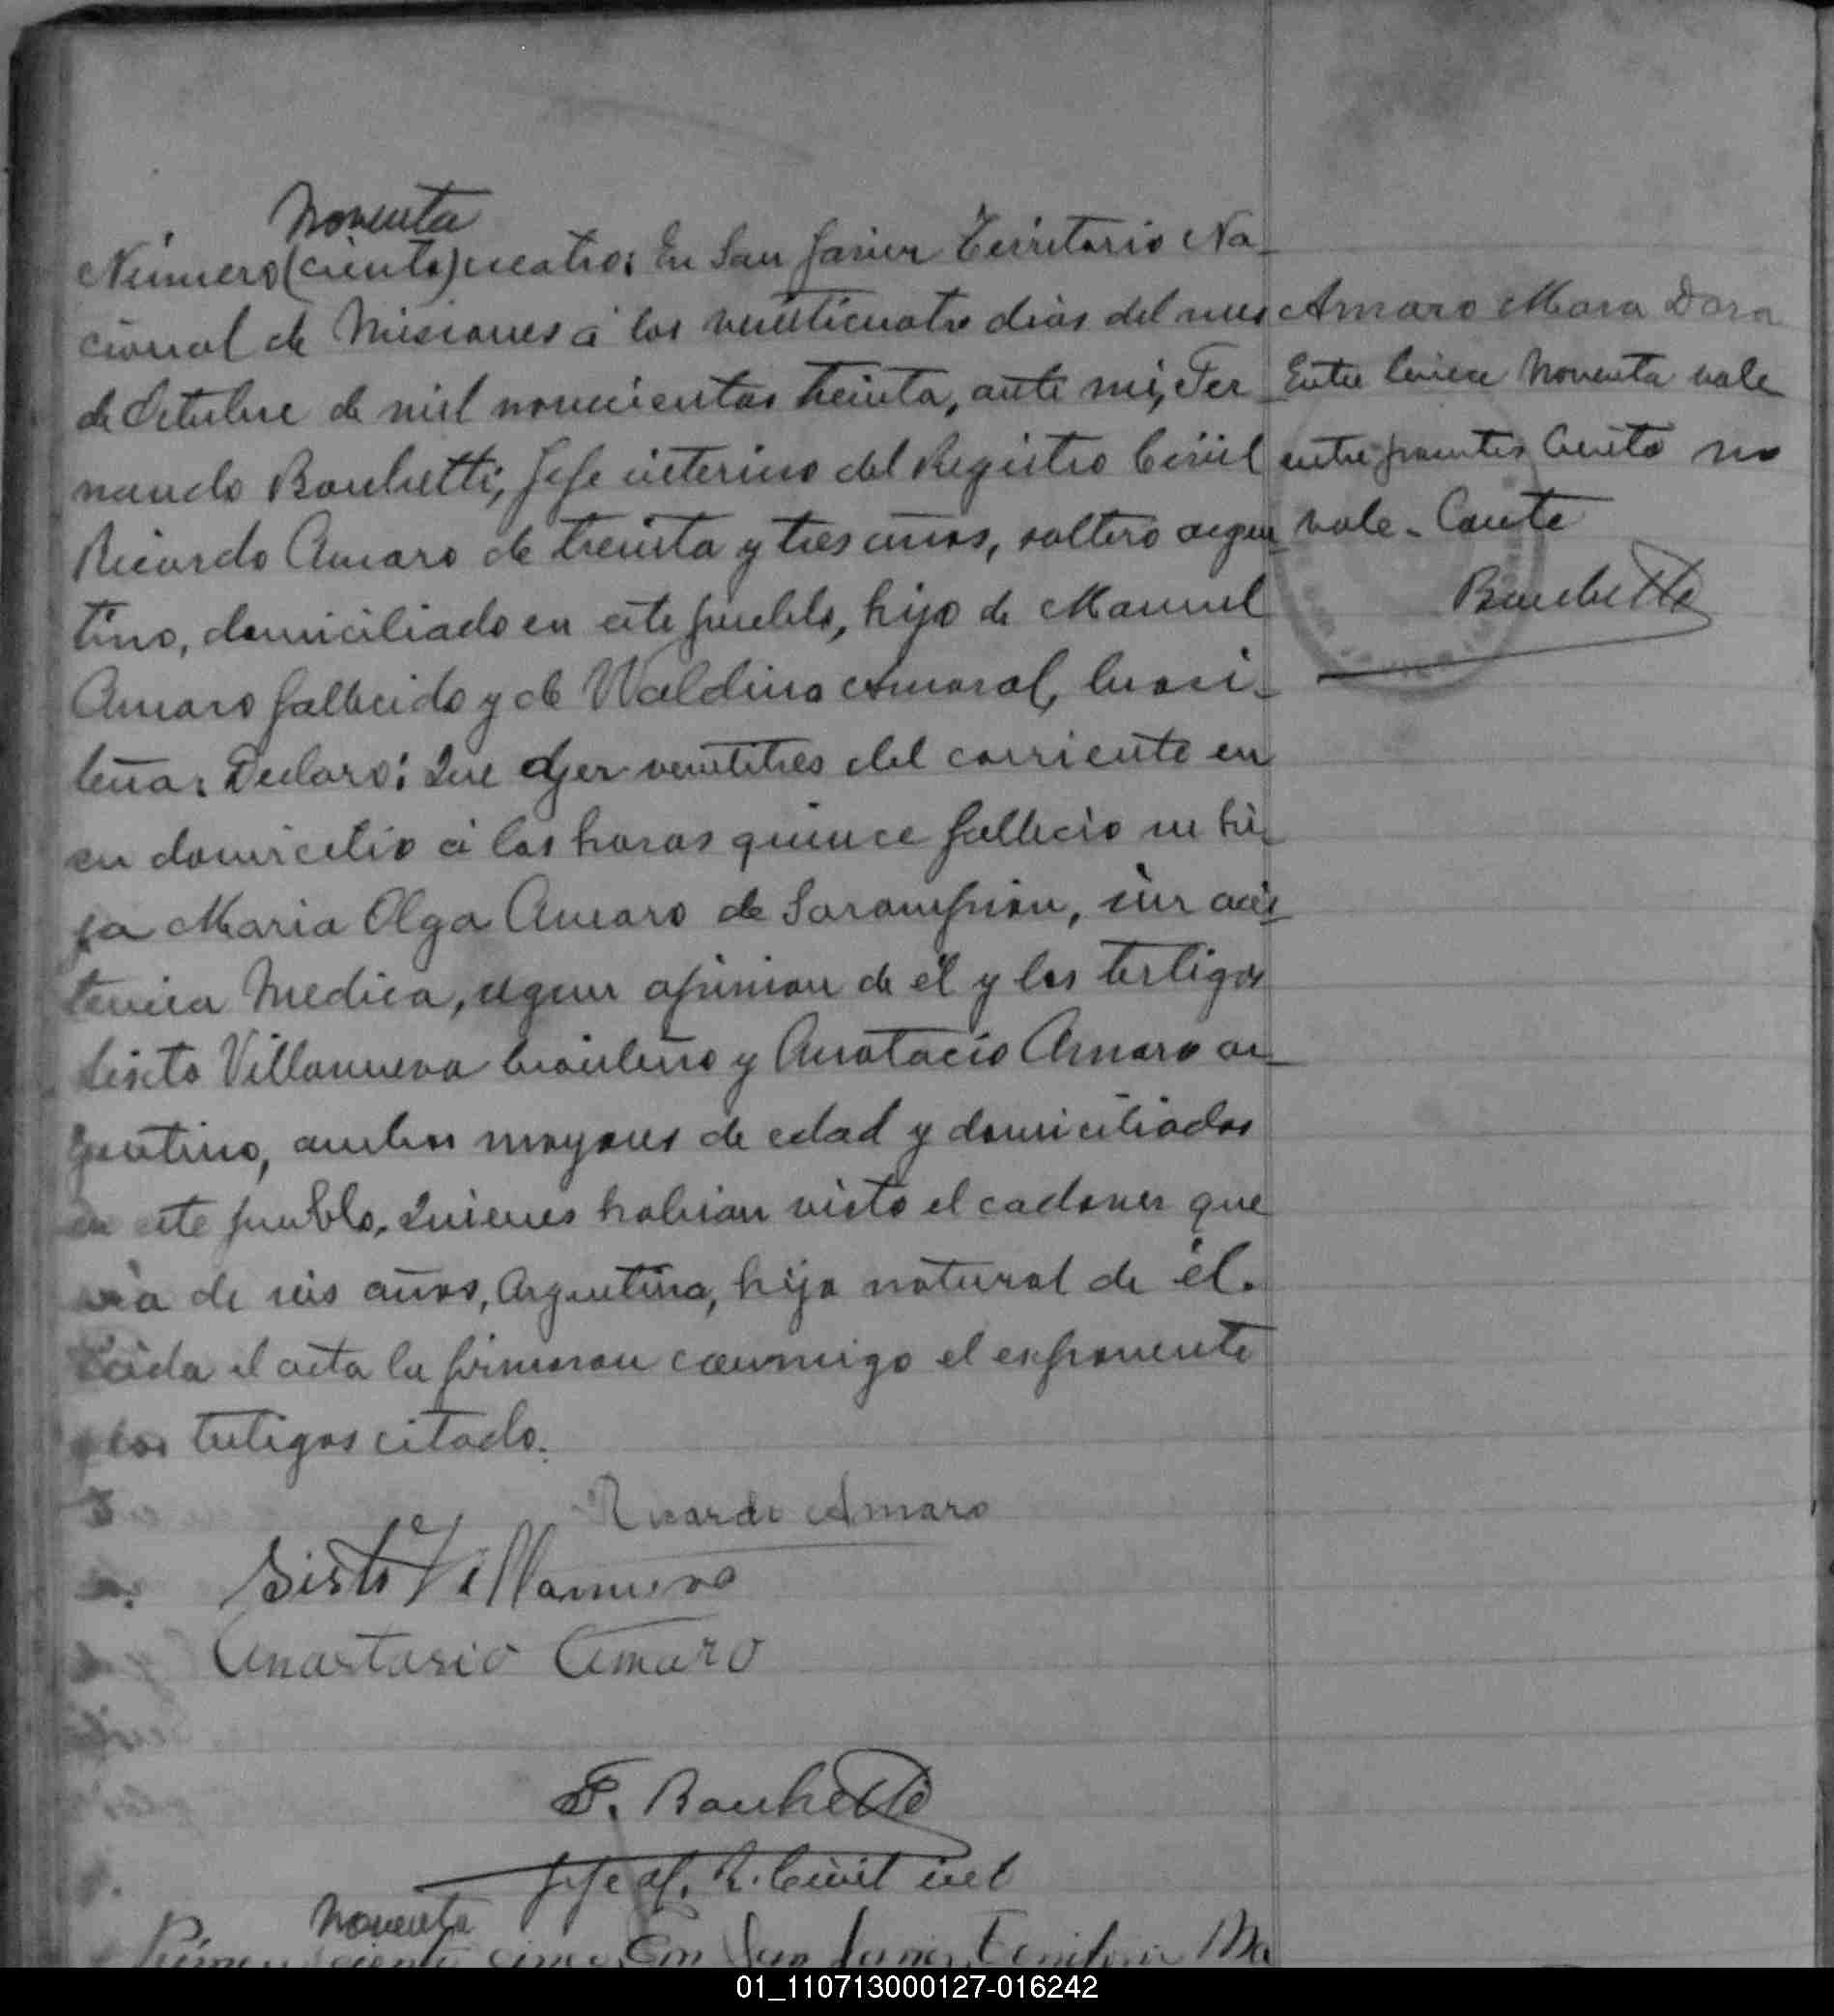 Noventa
Número (ciento) cuatro: En San Javier Territorio Na-
cional de Misiones á los veinticuatro dias del mes
de Octubre de mil novecientos treinta, ante mi, Fer-
nando Bonchetti, Jefe interino del Registro Civil
Ricardo Amaro de treinta y tres años, soltero argen-
tino, domiciliado en este pueblo, hijo de Manuel
Amaro fallecido y de Waldina Amaral, brasi-
leña. Declaró: Que ayer veintitres del corriente en
su domicilio á las horas quince fallecio su hi-
ja Maria Olga Amaro de Sarampion, sin asis-
tencia Medica, segun opinion de él y los testigos
Sixto Villanueva brasilero y Anatacio Amaro ar-
gentino, ambos mayores de edad y domiciliados
en este pueblo, Quienes habian visto el cadaver que
era de seis años, Argentina, hija natural de él.
Leida el acta la firmaron conmigo el exponente
y los testigos citado.
Ricardo Amaro
Sisto Villanueva
Anastasio Amaro
F. Bonchetti
Jefe del R. Civil int
Noventa
Número (ciento) cinco. En San Javier, Territorio Na
Amaro Mara Dora
Entre linea Noventa vale
entre parentes Ciento no
vale - Conste
Bonchetti
01_110713000127-016242